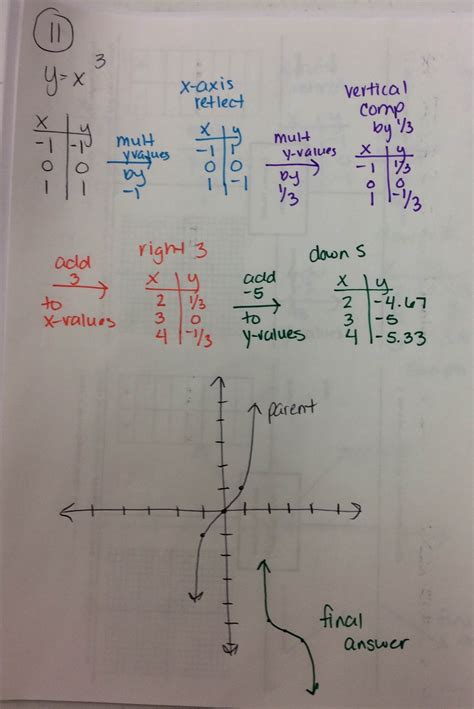 11
y=x³
x y
-1 -1
0 0
1 1
mult
y-values
by
-1
x-axis
reflect
x y
-1 1
0 0
1 -1
mult
y-values
by
1/3
vertical
comp
by 1/3
x y
-1 1/3
0 0
1 -1/3
add
3
to
x-values
right 3
x y
2 1/3
3 0
4 -1/3
add
-5
to
y-values
down 5
x y
2 -4.67
3 -5
4 -5.33
parent
final
answer